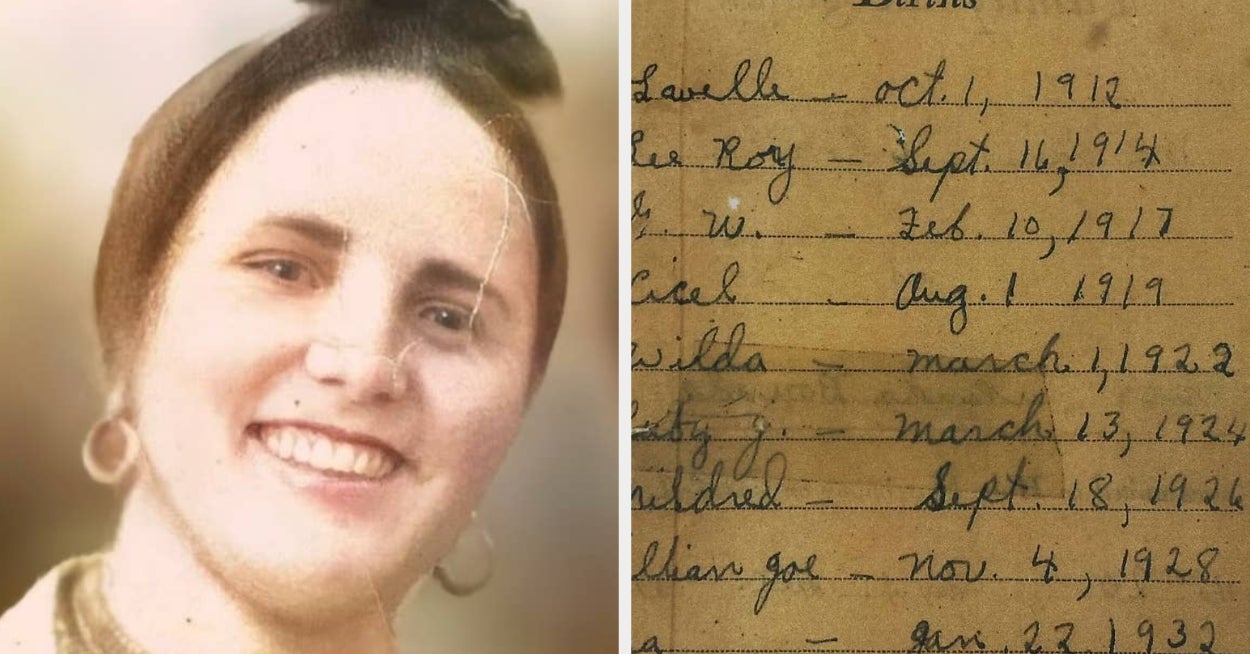 Births
Lavelle – oct. 1, 1912
Lee Roy – Sept. 16, 1914
W. – Feb. 10, 1917
Cicel – Aug. 1 1919
Wilda – march 1, 1922
J. – march 13, 1924
mildred – Sept. 18, 1926
llian Joe – Nov. 4, 1928
a – Jan. 22 1932